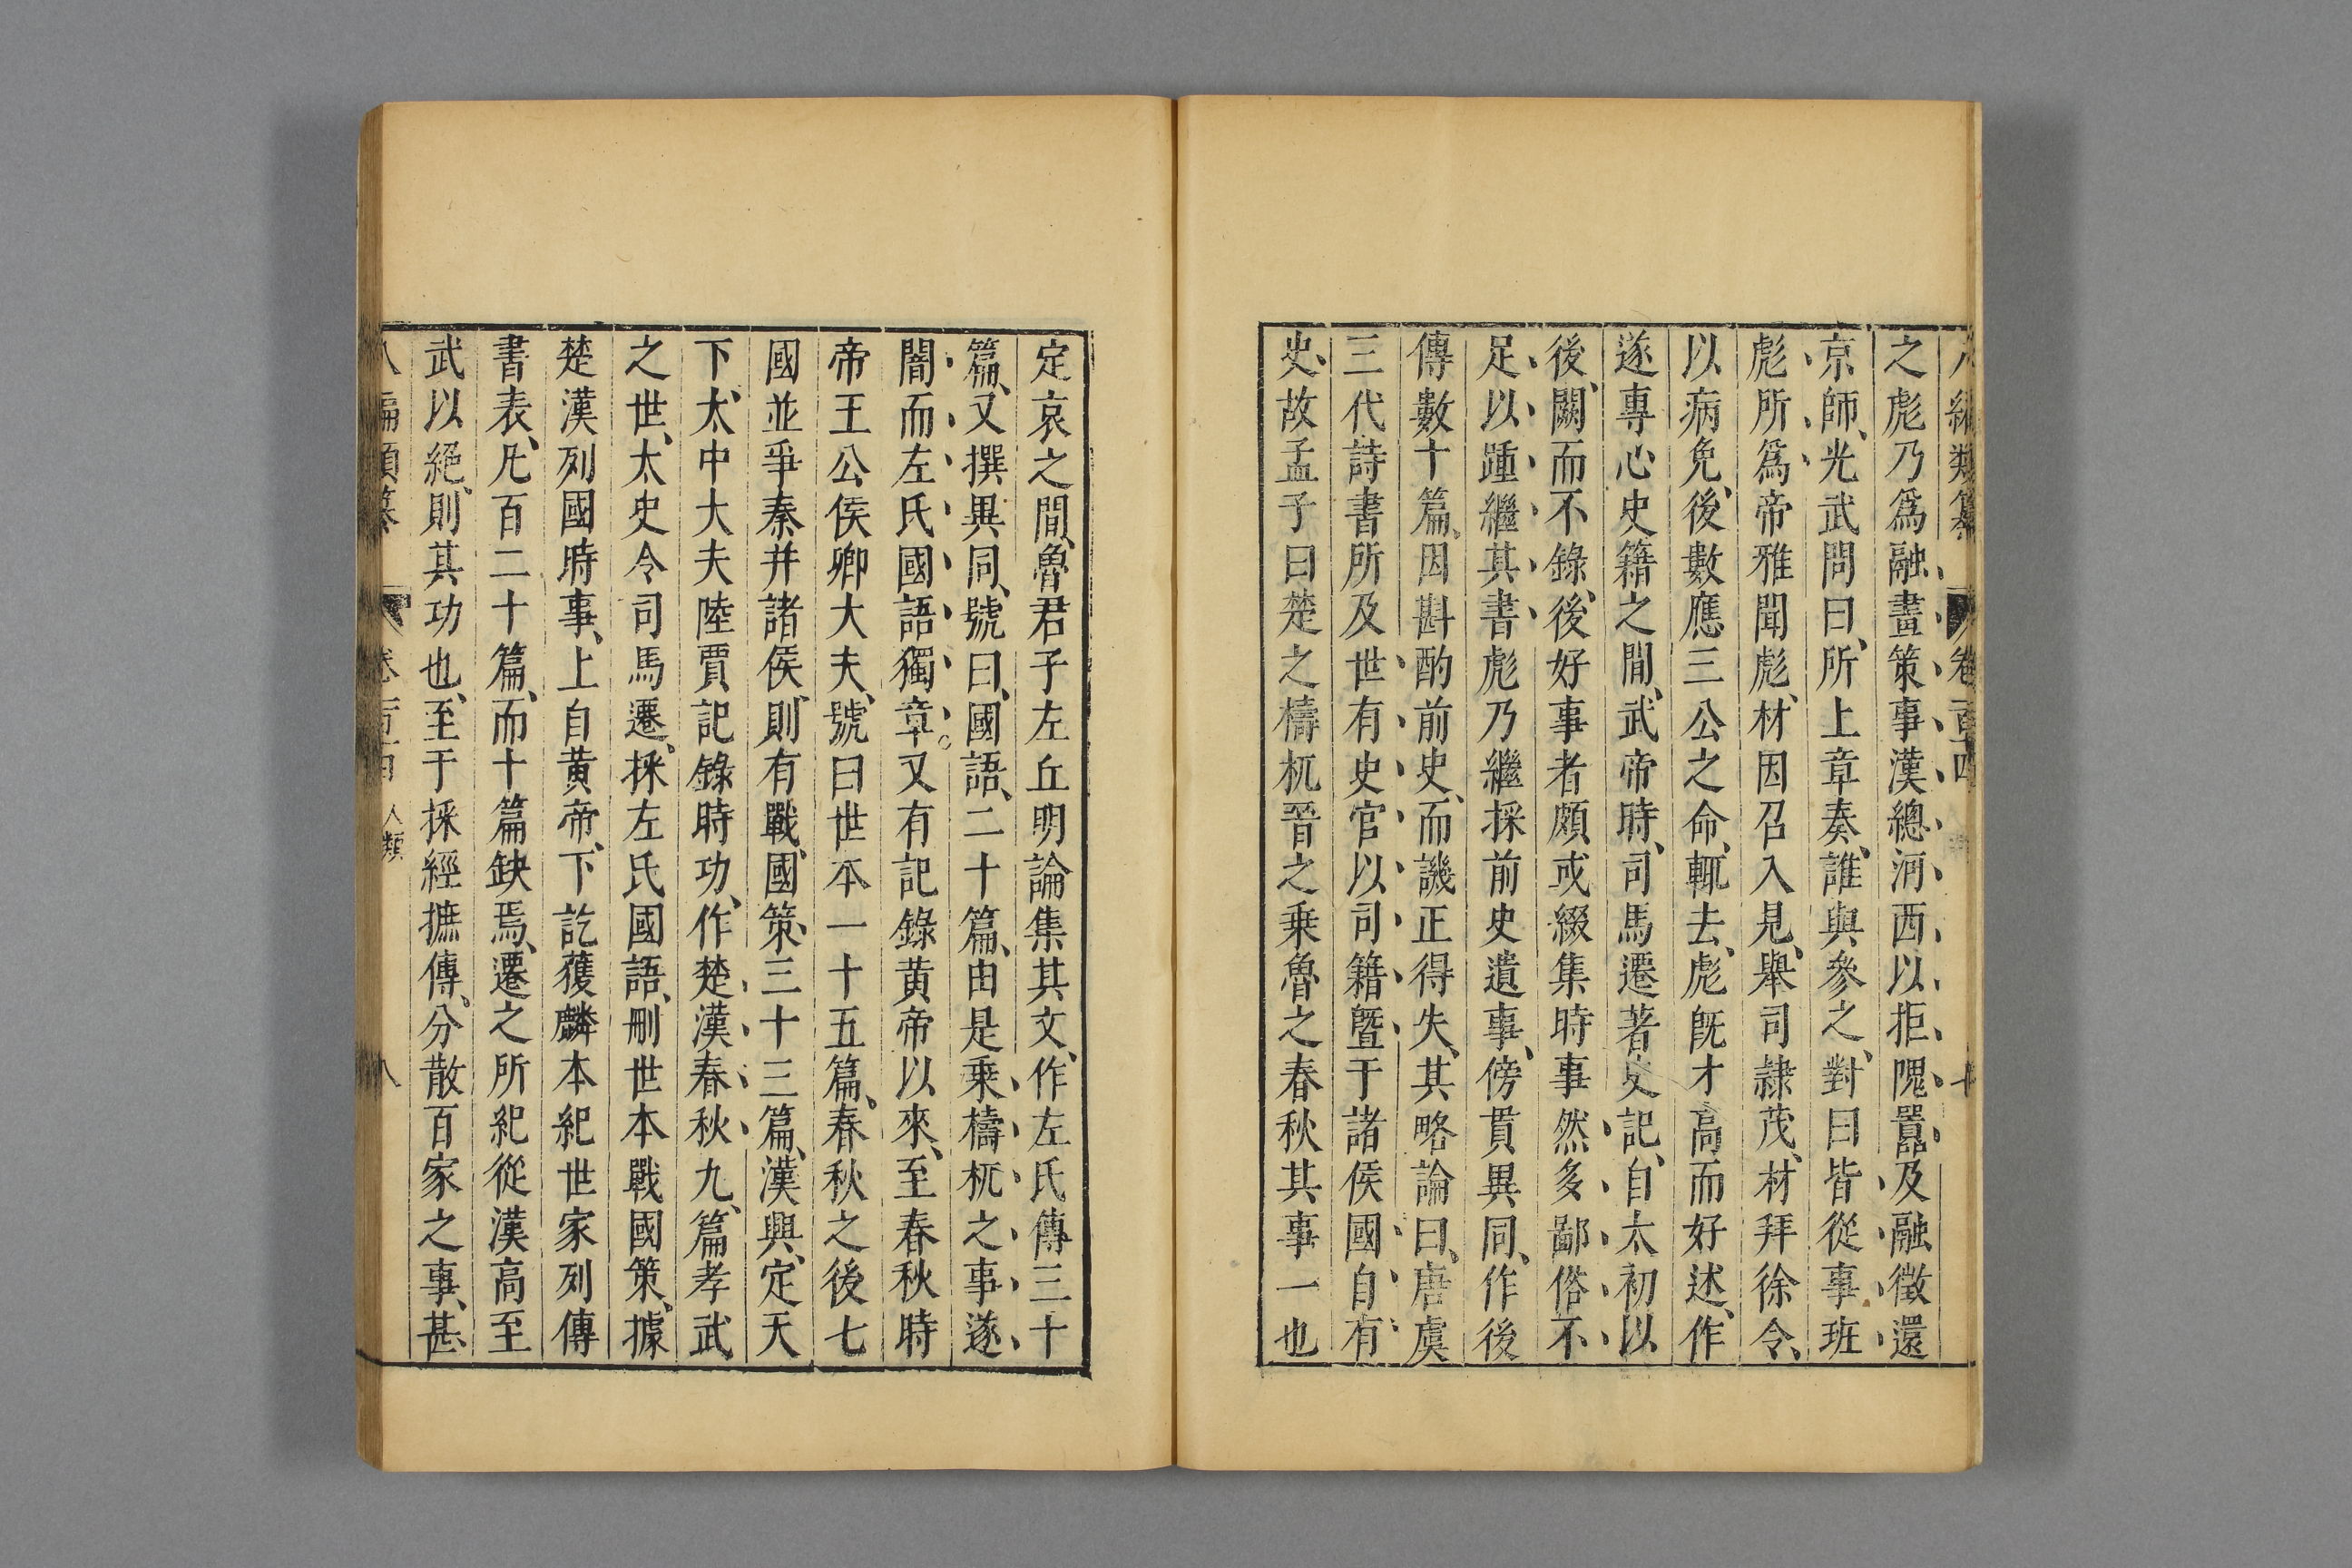 八編類纂 卷百十四
之彪乃爲融畫策事漢總河西以拒隗囂及融徵還
京師、光武問曰、所上章奏、誰與參之、對曰皆從事班
彪所爲帝雅聞彪、材因召入見、舉司隸茂、材拜徐令、
以病免、後數應三公之命、輒去、彪旣才高而好述、作
遂專心史籍之間、武帝時、司馬遷著史記、自太初以
後、闕而不錄、後好事者頗或綴集時事然多鄙俗不
足以踵繼其書彪乃繼採前史遺事、傍貫異同、作後
傳數十篇、因斟酌前史、而譏正得失、其略論曰、唐虞
三代詩書所及世有史官以司籍曁于諸侯國自有
史、故孟子曰楚之檮杌晉之乗魯之春秋其事一也
定哀之間、魯君子左丘明論集其文、作左氏傳三十
篇、又撰異同、號曰、國語、二十篇、由是乗檮杌之事遂
闇而左氏國語獨章。又有記錄黃帝以來、至春秋時
帝王公侯卿大夫、號曰世本一十五篇、春秋之後七
國並爭秦并諸侯、則有戰國策三十三篇、漢興、定天
下、太中大夫陸賈記錄時功、作楚漢春秋九篇、孝武
之世、太史令司馬遷、採左氏國語、刪世本戰國策、據
楚漢列國時事、上自黃帝、下訖獲麟本紀世家列傳
書表、凡百二十篇、而十篇缺焉、遷之所紀從漢高至
武以絕、則其功也、至于採經摭傳、分散百家之事、甚
八編類纂 卷百十四 人類 八